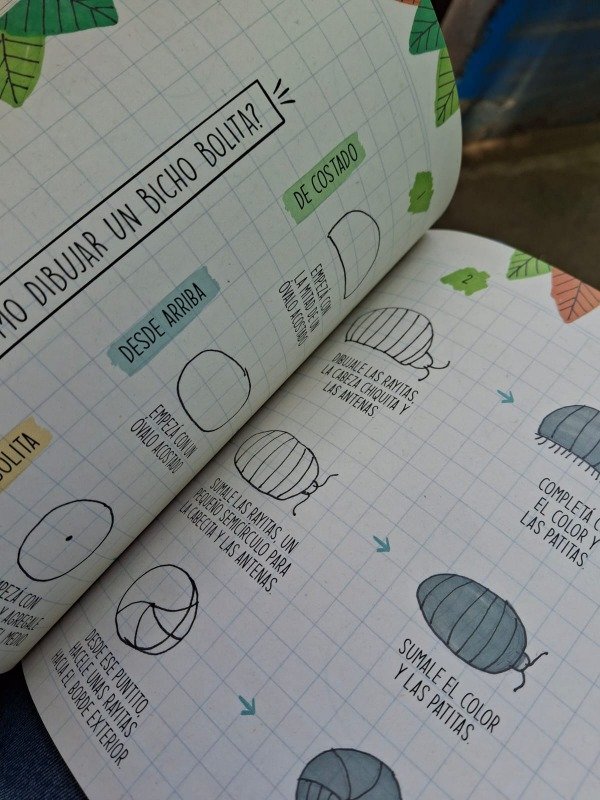 MO DIBUJAR UN BICHO BOLITA?
DE COSTADO
1
EMPEZÁ CON
LA MITAD DE UN
ÓVALO ACOSTADO
2
DIBUJALE LAS RAYITAS,
LA CABEZA CHIQUITA Y
LAS ANTENAS.
COMPLETÁ
EL COLOR Y
LAS PATITAS.
DESDE ARRIBA
EMPEZÁ CON UN
ÓVALO ACOSTADO
SUMALE LAS RAYITAS, UN
PEQUEÑO SEMICÍRCULO PARA
LA CABECITA Y LAS ANTENAS.
SUMALE EL COLOR
Y LAS PATITAS.
OLITA
PEZÁ CON
Y AGREGALE
L MEDIO
DESDE ESE PUNTITO,
HACELE UNAS RAYITAS
HACIA EL BORDE EXTERIOR.